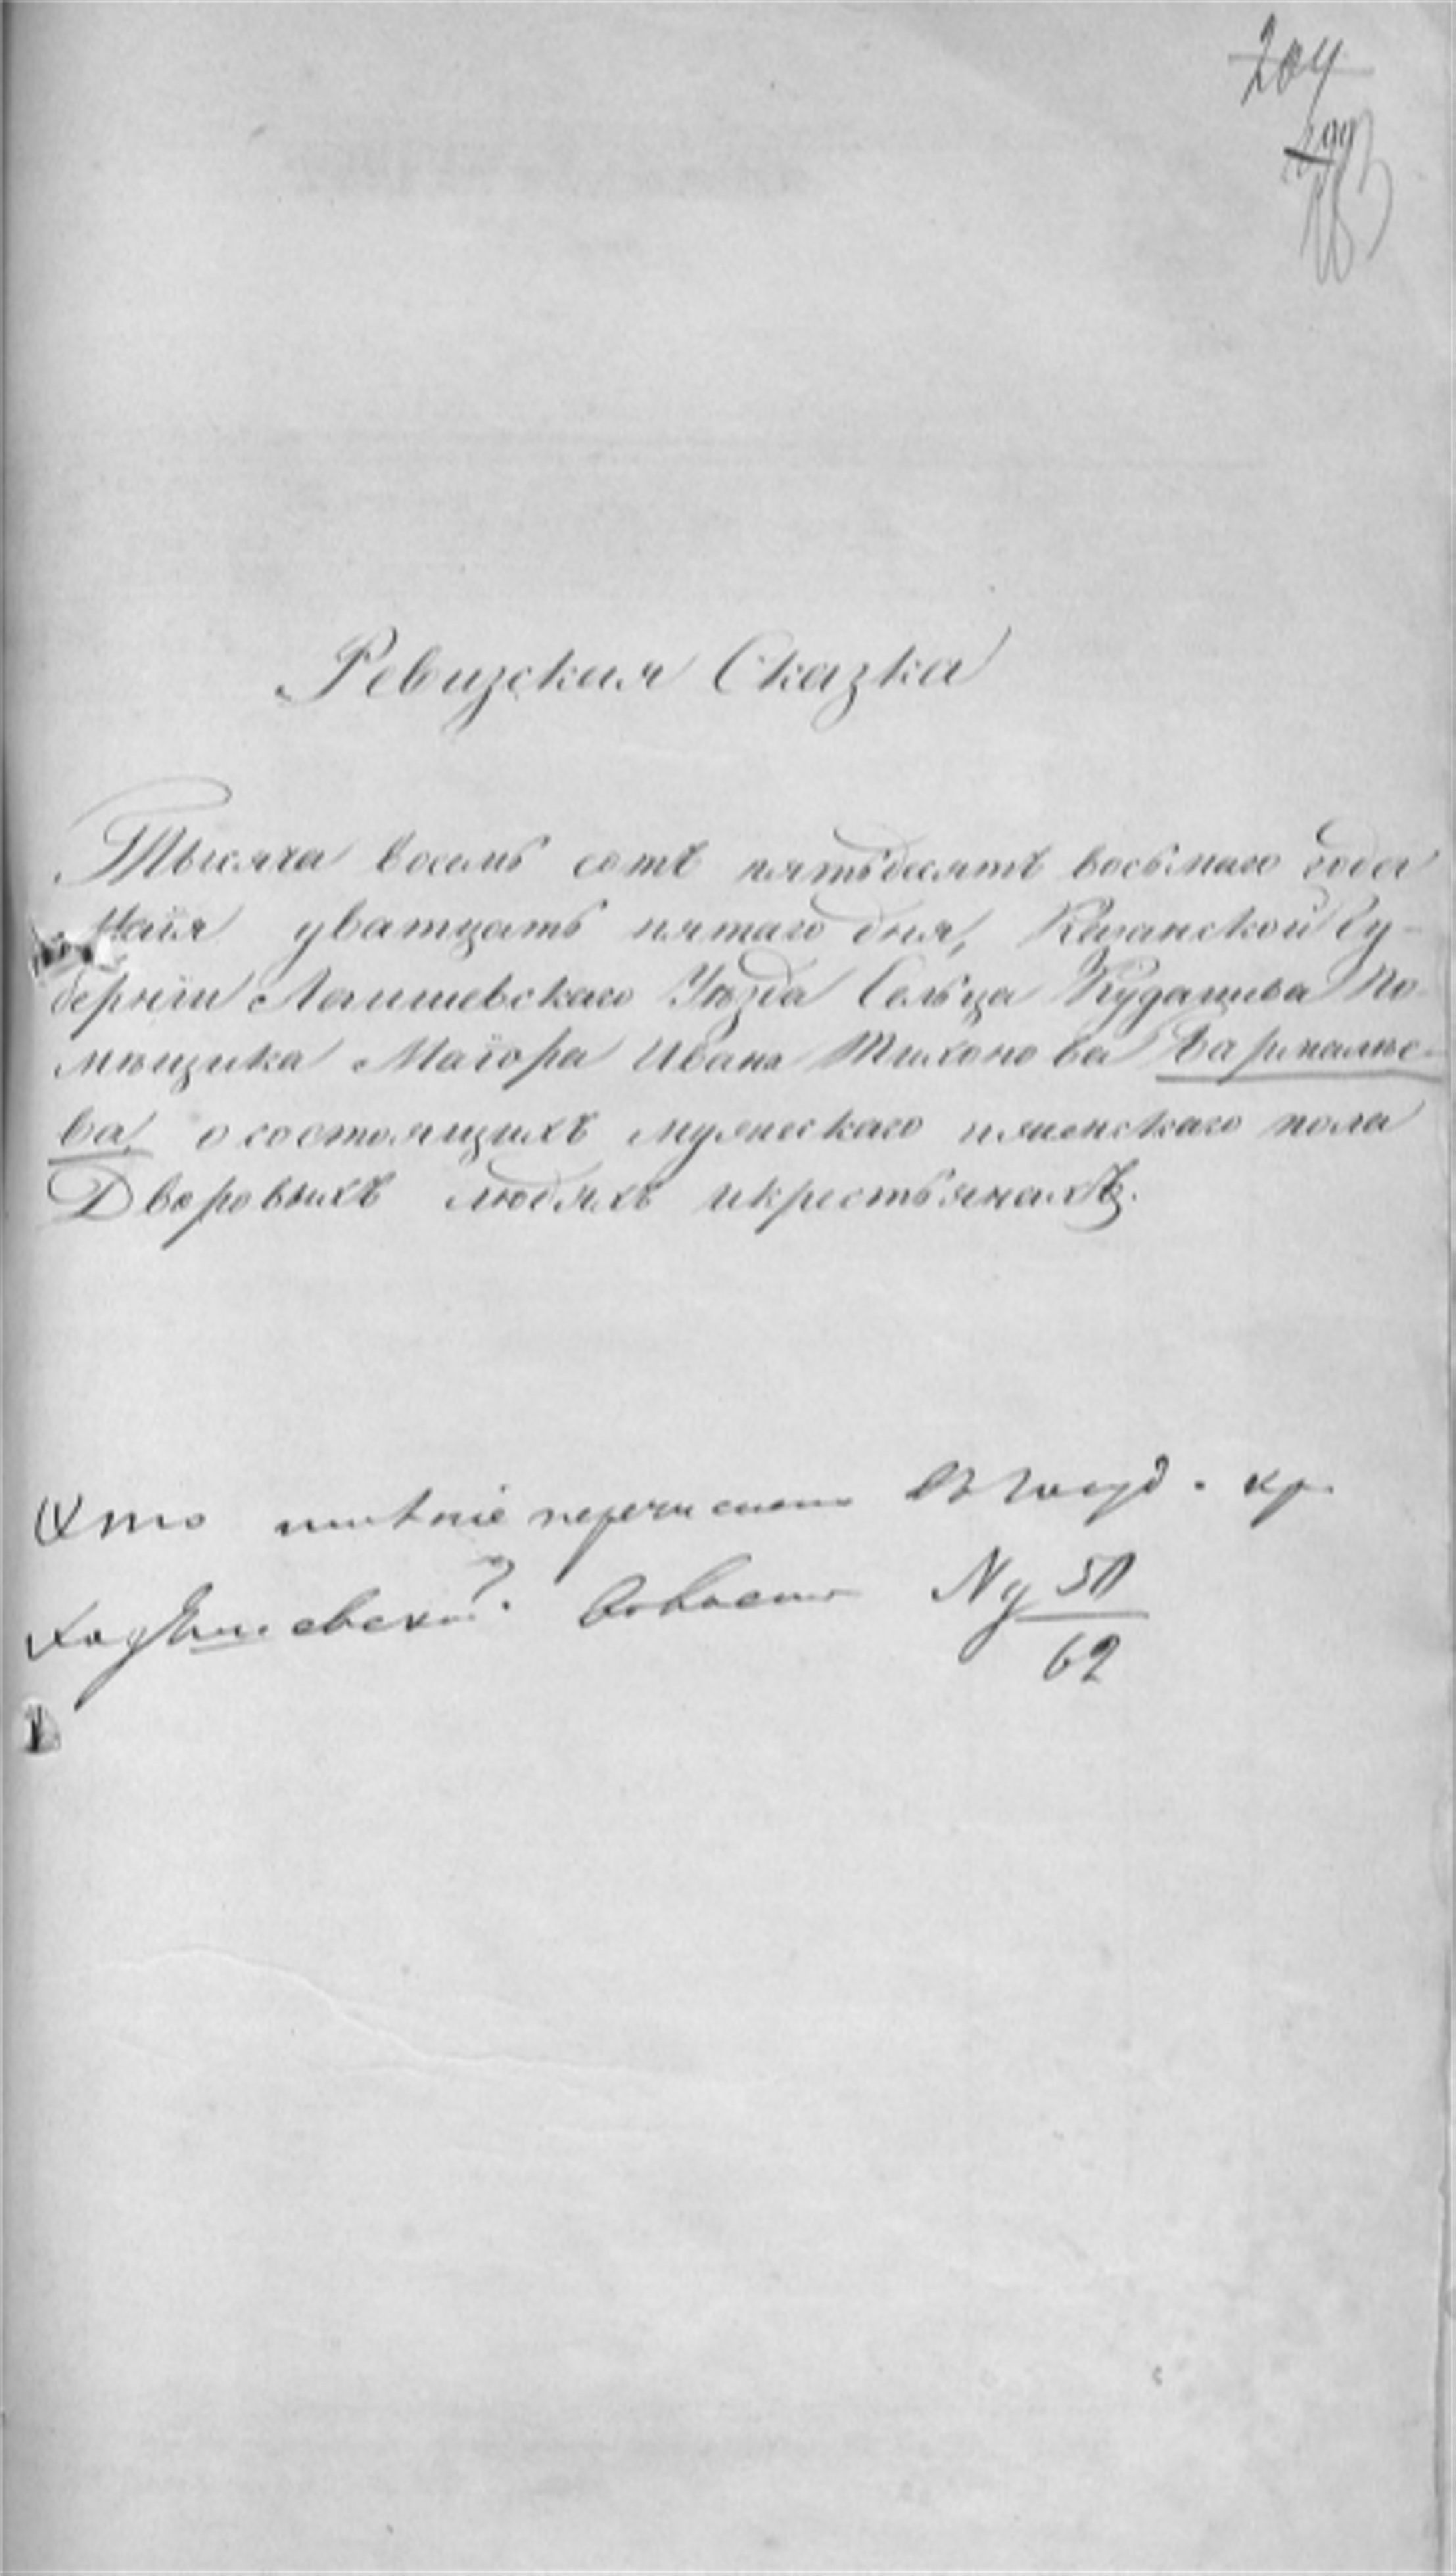 204
Ревизская Сказка
Тысяча восемь сотъ пятьдесятъ восьмаго года
Маія дватцать пятаго дня, Казанской Гу-
берніи Лаишевскаго Уѣзда Сельца Кудашева По-
мѣщика Маіора Ивана Тихонова
ва о состоящихъ мужескаго и женскаго пола
Дворовыхъ людяхъ и крестьянахъ.
имѣніе перечислено въ Госуд. кр.
62